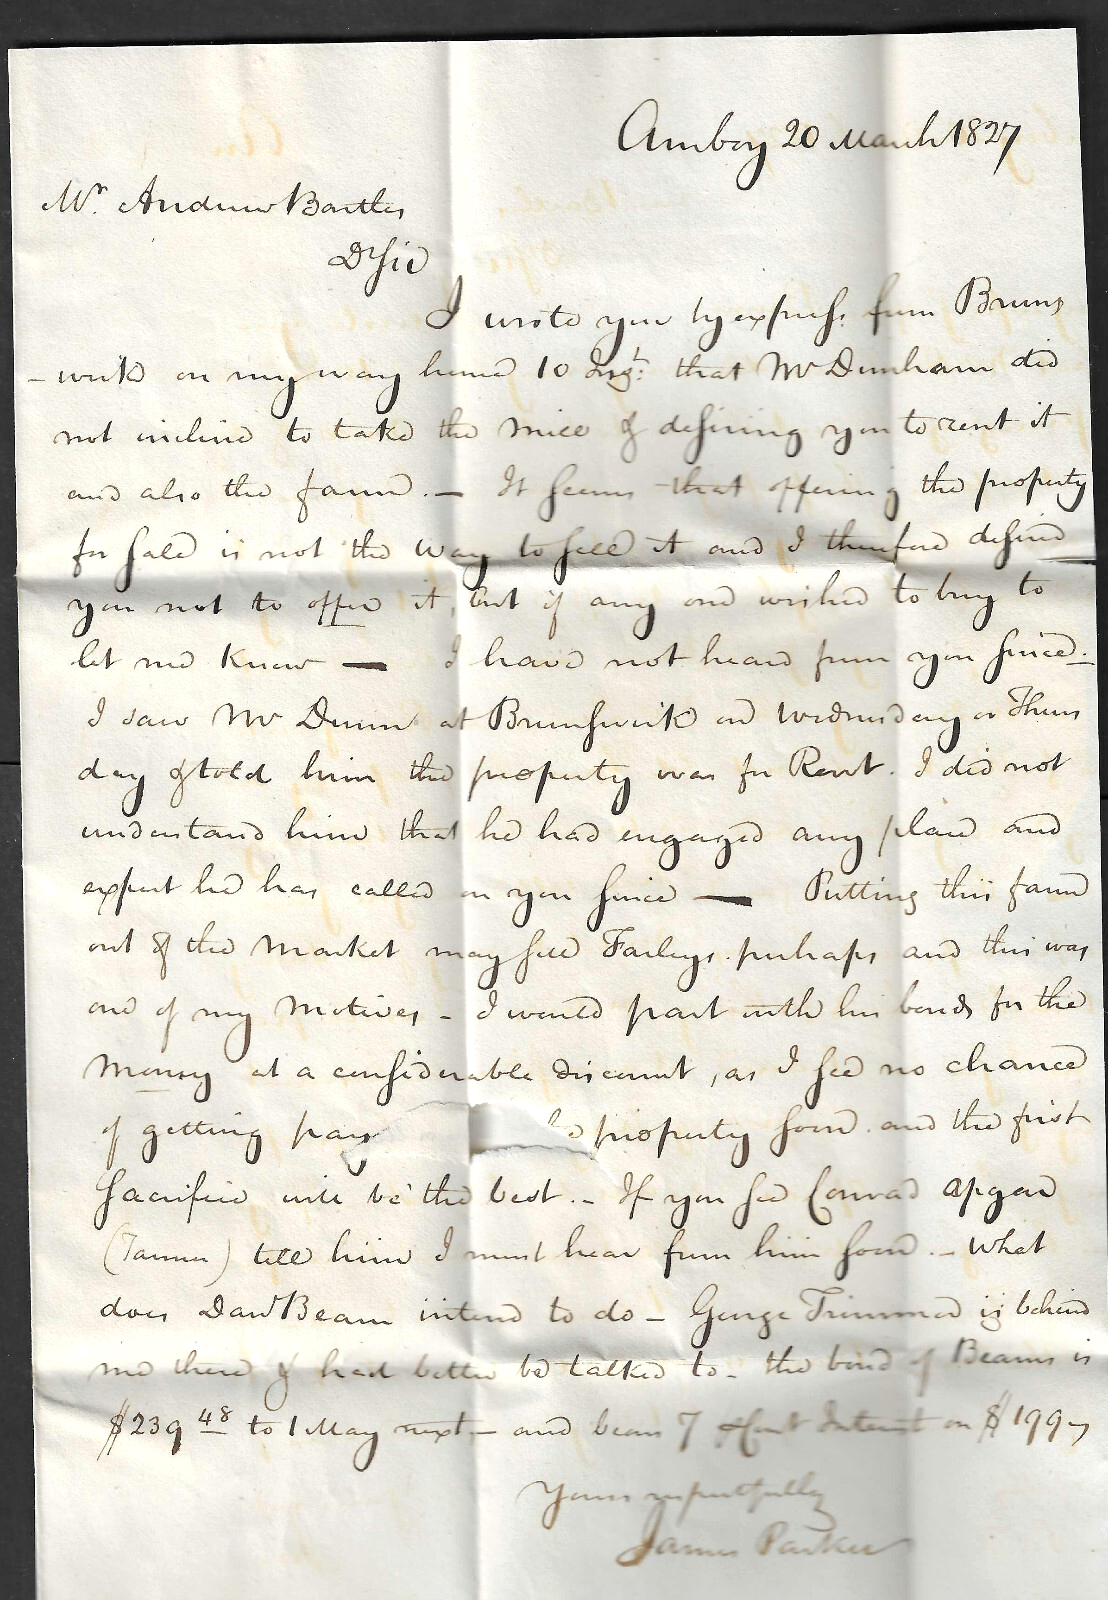 Amboy 20 March 1827
Mr. Andrew Bartles
Dr Sir
I wrote you by express from Bruns
-wick on my way home 10 Inst: that Mr Dunham did
not incline to take the mill & desiring you to rent it
and also the farm. — It seems that offering the property
for sale is not the way to sell it and I therefore desired
you not to offer it, but if any one wished to buy to
let me know — I have not heard from you since.
I saw Mr Dunn at Brunswick on Wednesday or Thurs
day & told him the property was for Rent. I did not
understand him that he had engaged any place and
expect he has called on you since — Putting this farm
out of the Market may sell Farleys perhaps and this was
one of my Motives – I would part with his bonds for the
Money at a considerable discount, as I see no chance
of getting pay property soon and the first
Sacrifice will be the best. – If you see Conrad Apgar
(Tanner) tell him I must hear from him soon. – What
does Davd Beam intend to do – George Trimmer is behind
me there & had better be talked to – the bond of Beams is
$239 48 to 1 May next – and bears 7 Pcent Interest on $199
Yours respectfully
James Parker